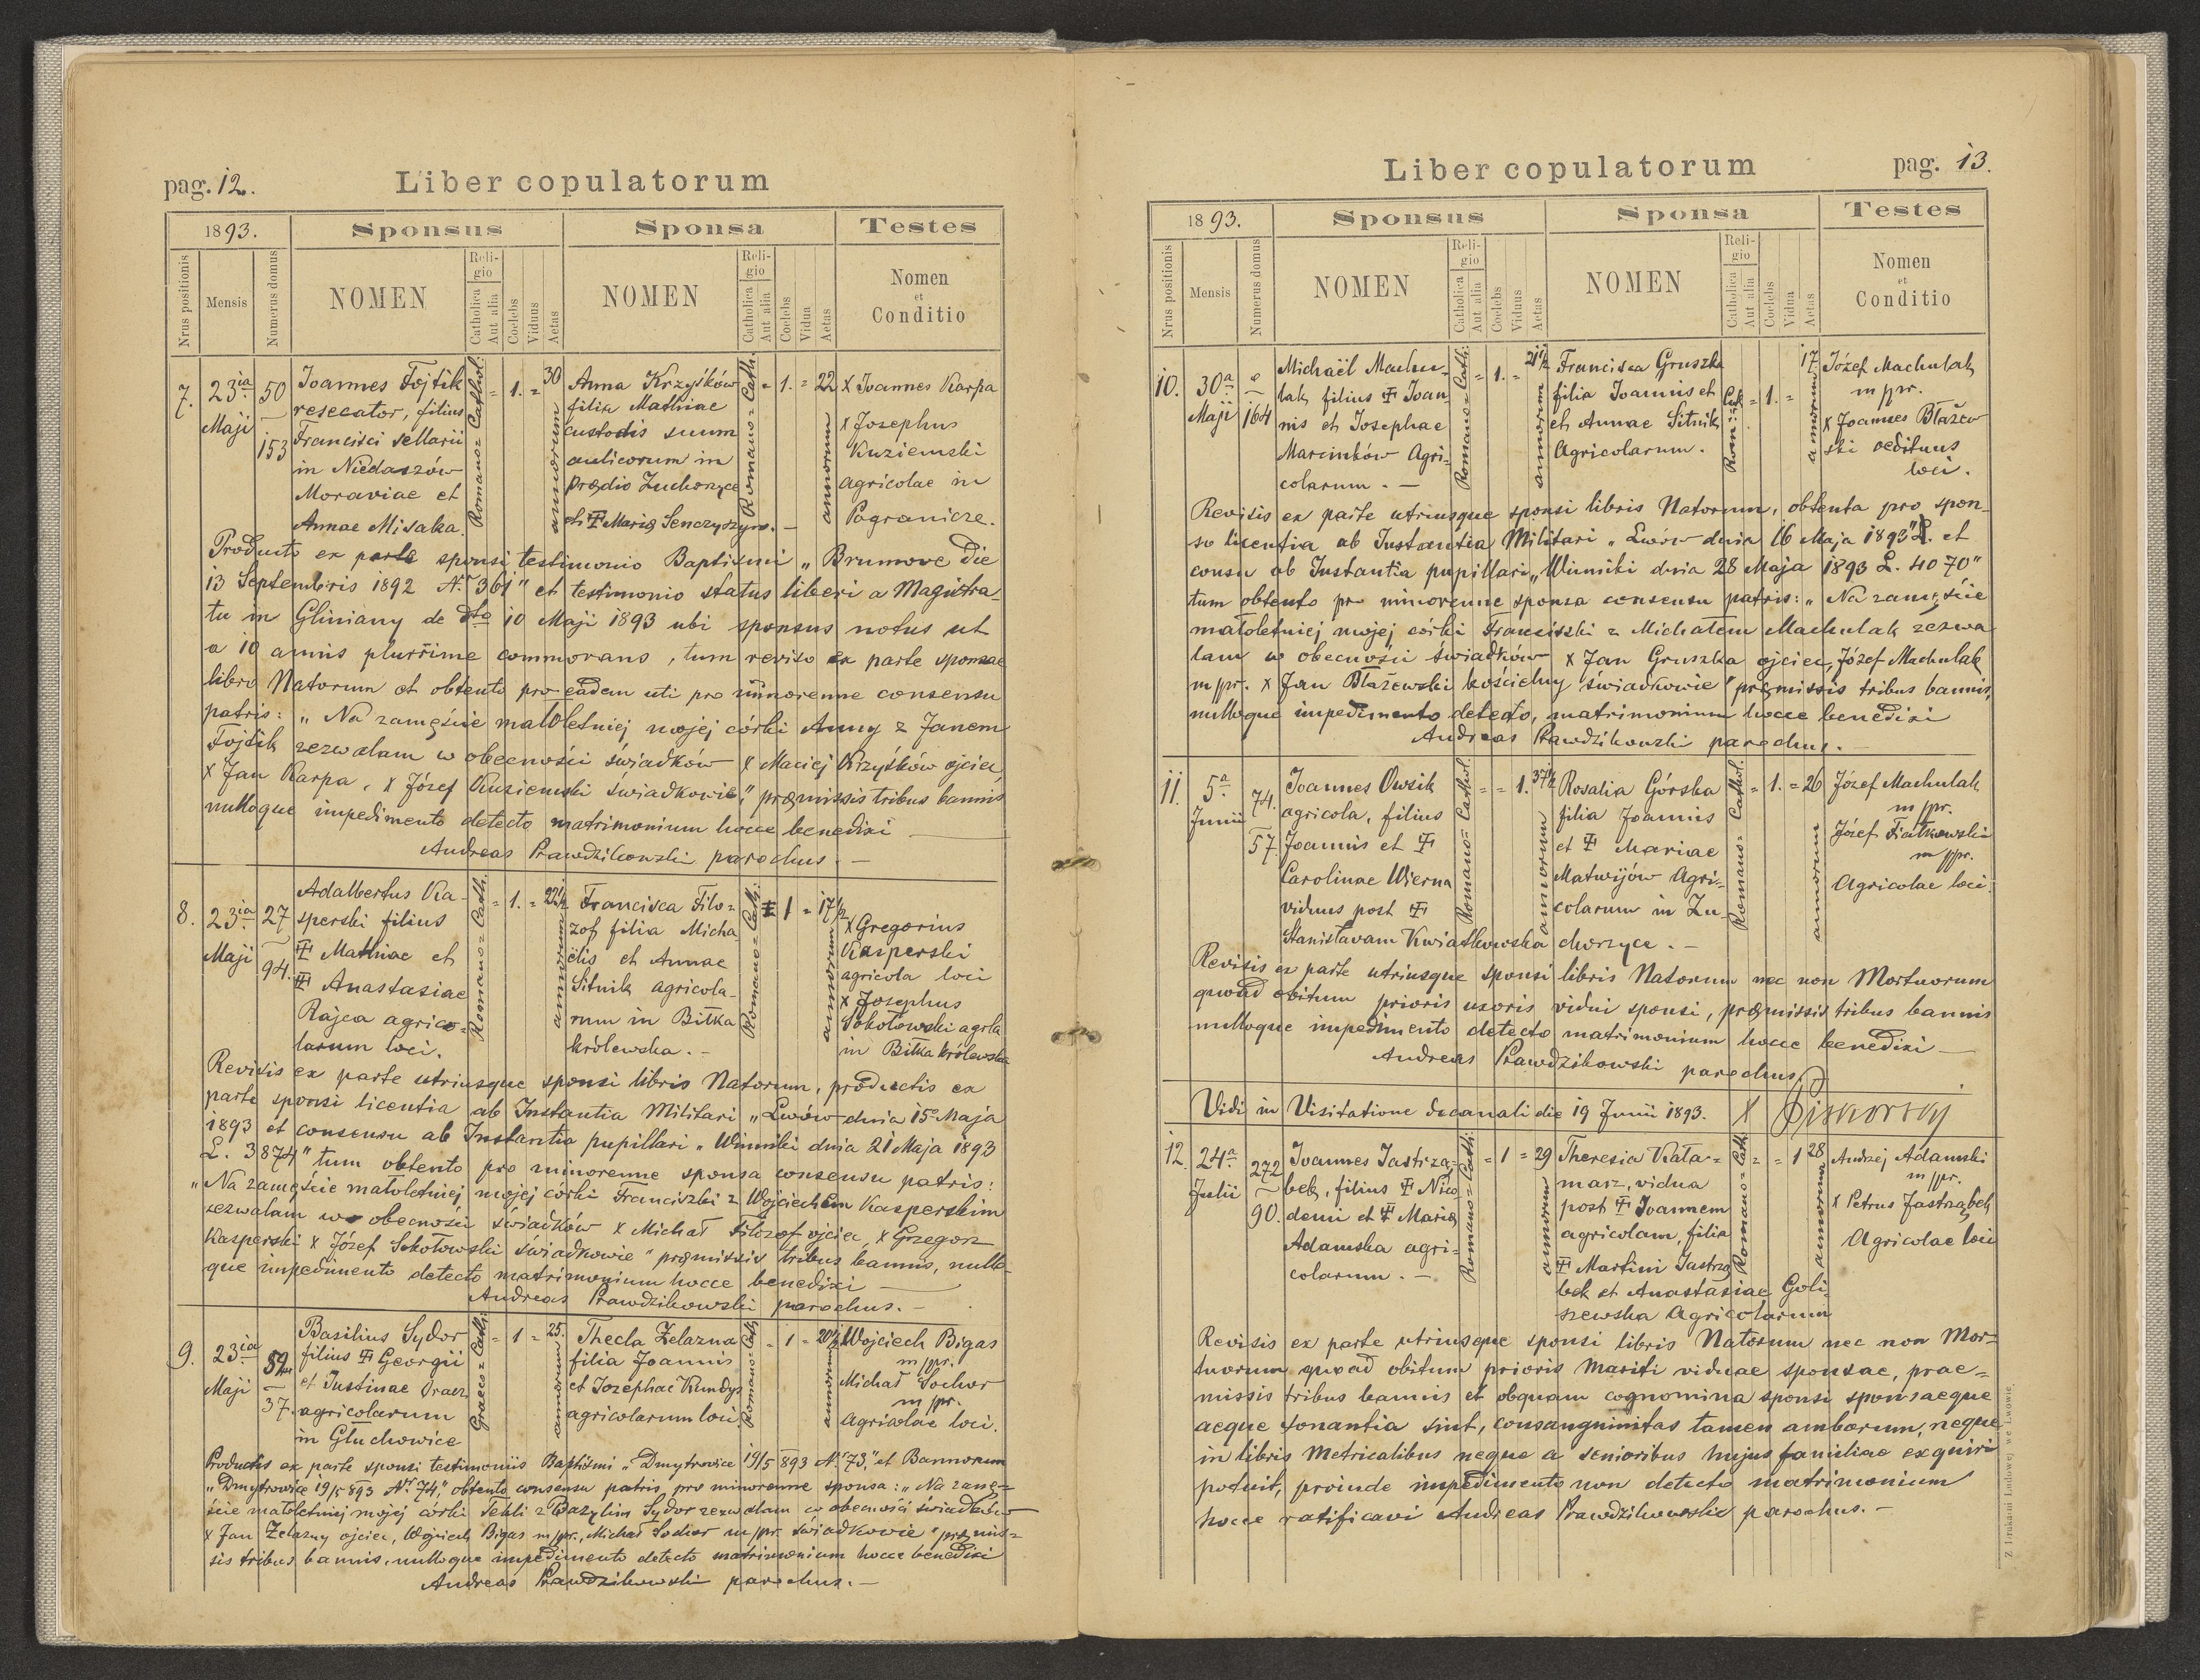 pag. 12.
Liber copulatorum
1893.
Sponsus
Sponsa
Testes
Nrus positionis
Mensis
Numerus domus
NOMEN
Religio
Catholica
Aut alia
Coelebs
Viduus
Aetas
NOMEN
Religio
Catholica
Aut alia
Coelebs
Vidua
Aetas
Nomen
et
Conditio
7.
23ia
Maji
50
153
Joannes Fojtik
resecator, filius
Francisci sellarii
in Niedaszów
Moraviae et
Annae Misaka.
Romano = Cathol.
= 1. =
30
annorum
Anna Krzyśków
filia Mathiae
custodis suum
aulicorum in
prędio Zuchorzyce
et Ŧ Marię Senczyszyn. –
Romano = Cath.
= 1. =
22
annorum
x Joannes Karpa
x Josephus
Kuziemski
agricolae in
Pogranicze.
Producto ex parte sponsi testimonio Baptismi „Brumove die
13 Septembris 1892 Nr 361" et testimonio status liberi a Magistra-
tu in Gliniany de dto 10 Maji 1893 ubi sponsus notus ut
a 10 annis plurrime commorans, tum reviso ex parte sponsae
libro Natorum et obtento pro eadem uti pro minorenne consensu
patris: „Na zamęście małoletniej mojej córki Anny z Janem
Fojtik zezwalam w obecności świadków x Maciej Krzyśków ojciec,
x Jan Karpa, x Józef Kuziemski świadkowie," pręmissis tribus bannis
nulloque impedimento detecto matrimonium hocce benedixi
Andreas Prawdzikowski parochus. –
8.
23ia
Maji
27
94.
Adalbertus Ka-
sperski filius
Ŧ Mathiae et
Ŧ Anastasiae
Rajca agrico-
larum loci.
Romano = Cath.
= 1. =
22½
annorum
Francisca Filo-
zof filia Micha-
ëlis et Annae
Sitnik agricola-
rum in Biłka
królewska. –
Romano = Cath.
1 =
17½
annorum
x Gregorius
Kasperski
agricola loci
x Josephus
Sokołowski agrla
in Biłka królewska
Revisis ex parte utriusque sponsi libris Natorum, productis ex
parte sponsi licentia ab Instantia Militari „Lwów dnia 15 Maja
1893 et consensu ab Instantia pupillari „Winniki dnia 21 Maja 1893
L. 3874" tum obtento pro minorenne sponsa consensu patris:
„Na zamęście małoletniej mojej córki Franciszki z Wojciechem Kasperskim
zezwalam w obecności świadków x Michał Filozof ojciec, x Grzegorz
Kasperski x Józef Sokołowski świadkowie" pręmissis tribus bannis, nullo-
que impedimento detecto matrimonium hocce benedixi
Andreas Prawdzikowski parochus. –
9.
23ia
Maji
37.
Basilius Sydor
filius Ŧ Georgii
et Justinae Pracz
agricolarum
in Głuchowice
Graeco = Cath.
= 1 =
25.
annorum
Thecla Żelazna
filia Joannis
et Josephae Kundys
agricolarum loci
Romano = Cath.
= 1 =
20½
annorum
Wojciech Bigas
m/pr.
Michał Sochor
m/pr.
agricolae loci.
Productis ex parte sponsi testimoniis Baptismi „Dmytrowice 19/5 893 Nr 73," et Bannorum
„Dmytrowice 19/5 893 Nr 74," obtento consensu patris pro minorenne sponsa: „Na zamę-
ście małoletniej mojej córki Tekli z Bazylim Sydor zezwalam w obecności świadków
x Jan Żelazny ojciec, Wojciech Bigas m/pr., Michał Sochor m/pr. świadkowie" pręmis-
sis tribus bannis, nulloque impedimento detecto matrimonium hocce benedixi
Andreas Prawdzikowski parochus. –
Liber copulatorum
pag. 13.
1893.
Sponsus
Sponsa
Testes
Nrus positionis
Mensis
Numerus domus
NOMEN
Religio
Catholica
Aut alia
Coelebs
Viduus
Aetas
NOMEN
Religio
Catholica
Aut alia
Coelebs
Vidua
Aetas
Nomen
et
Conditio
10.
30a
Maji
164
Michaël Machu-
lak, filius Ŧ Joan-
nis et Josephae
Marcinków Agri-
colarum. –
Romano = Cath.
= 1. =
21½
annorum
Francisca Gruszka
filia Joannis et
et Annae Sitnik
Agricolarum.
= 1. =
17.
annorum
Józef Machulak
m/pr.
x Joannes Błażew-
ski aedituus
loci.
Revisis ex parte utriusque sponsi libris Natorum, obtenta pro spon-
so licentia ab Instantia Militari „Lwów dnia 16 Maja 1893" et
consu ab Instantia pupillari „Winniki dnia 28 Maja 1893 L. 4070"
tum obtento pro minorenne sponsa consensu patris: „Na zamęście
małoletniej mojej córki Franciszki z Michałem Machulak zezwa-
lam w obecności świadków x Jan Gruszka ojciec, Józef Machulak
m/pr. x Jan Błażewski kościelny świadkowie" pręmissis tribus bannis,
nulloque impedimento detecto, matrimonium hocce benedixi
Andreas Prawdzikowski parochus. –
11.
5a
Junii
74.
57
Joannes Owsik
agricola, filius
Joannis et Ŧ
Carolinae Wierna
viduus post Ŧ
Stanisławam Kwiatkowska
Romano = Cathol.
= = 1.
37½
annorum
Rosalia Górska
filia Joannis
et Ŧ Mariae
Matwijów Agri-
colarum in Zu-
chorzyce. –
Romano = Cathol.
= 1. =
26
annorum
Józef Machulak
m/pr.
Józef Fiałkowski
m/pr.
Agricolae loci.
Revisis ex parte utriusque sponsi libris Natorum nec non Mortuorum
quoad obitum prioris uxoris vidui sponsi, pręmissis tribus bannis
nulloque impedimento detecto matrimonium hocce benedixi –
Andreas Prawdzikowski parochus
Vidi in Visitatione decanali die 19 Junii 1893.
12.
24a
Julii
272
90.
Joannes Jastrzą-
bek, filius Ŧ Nico-
demi et Ŧ Marię
Adamska agri-
colarum. –
Romano = Cath.
= 1 =
29
annorum
Theresia Kata-
marz, vidua
post Ŧ Joannem
agricolam, filia
Ŧ Martini Jastrzą-
bek et Anastasiae Goli-
szewska Agricolarum
Romano = Cath.
= = 1
28
annorum
Andrzej Adamski
m/pr.
x Petrus Jastrząbek
Agricolae loci
Revisis ex parte utriusque sponsi libris Natorum nec non Mor-
tuorum quoad obitum prioris mariti viduae sponsae, prae-
missis tribus bannis et obquam cognomina sponsi sponsaeque
aeque sonantia sint, consanguinitas tamen amborum, neque
in libris Metricalibus neque a senioribus hujus familiae exquiri
potuit, proinde impedimento non detecto matrimonium
hocce ratificavi Andreas Prawdzikowski parochus. –
Z drukarni Ludowej we Lwowie.